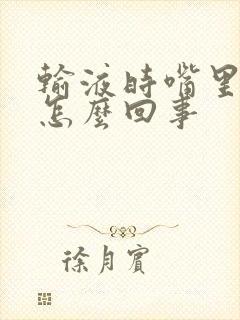 输液时嘴里
怎麼回事
徐月賓